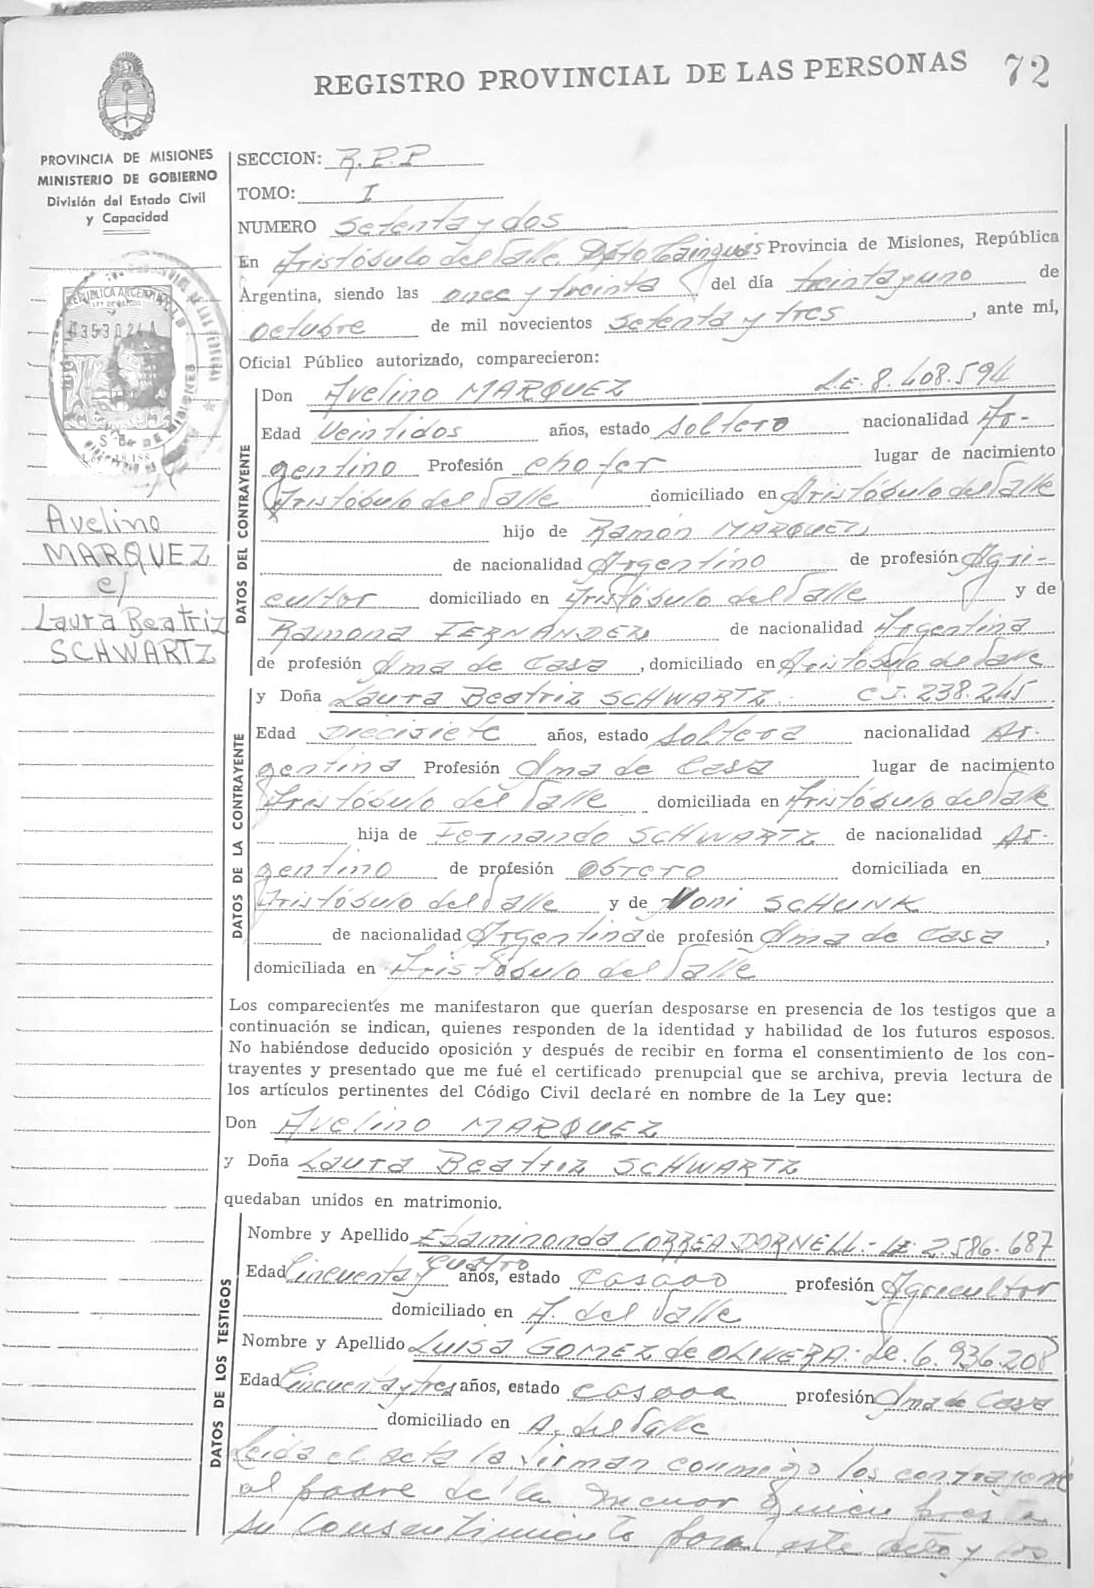 REGISTRO PROVINCIAL DE LAS PERSONAS 72
PROVINCIA DE MISIONES
MINISTERIO DE GOBIERNO
División del Estado Civil
y Capacidad
REPUBLICA ARGENTINA
Avelino
MARQUEZ
c/
Laura Beatriz
SCHWARTZ
SECCION: R.P.P
TOMO: I
NUMERO Setenta y dos
En Aristóbulo del Valle Dpto Cainguás Provincia de Misiones, República
Argentina, siendo las once y treinta del día treinta y uno de
octubre de mil novecientos setenta y tres, ante mí,
Oficial Público autorizado, comparecieron:
DATOS DEL CONTRAYENTE
Don Avelino MARQUEZ L.E. 8.408.594
Edad Veintidos años, estado Soltero nacionalidad Ar-
gentino Profesión chofer lugar de nacimiento
Aristóbulo del Valle domiciliado en Aristóbulo del Valle
hijo de Ramón MARQUEZ
de nacionalidad Argentino de profesión Agri-
cultor domiciliado en Aristóbulo del Valle y de
Ramona FERNANDEZ de nacionalidad Argentina
de profesión Ama de Casa, domiciliado en Aristóbulo del Valle
DATOS DE LA CONTRAYENTE
y Doña Laura Beatriz SCHWARTZ. C.I. 238.245
Edad Diecisiete años, estado Soltera nacionalidad Ar-
gentina Profesión Ama de Casa lugar de nacimiento
Aristóbulo del Valle domiciliada en Aristóbulo del Valle
hija de Fernando SCHWARTZ de nacionalidad Ar-
gentino de profesión Obrero domiciliada en
Aristóbulo del Valle y de Noni SCHUNK
de nacionalidad Argentina de profesión Ama de Casa,
domiciliada en Aristóbulo del Valle
Los comparecientes me manifestaron que querían desposarse en presencia de los testigos que a
continuación se indican, quienes responden de la identidad y habilidad de los futuros esposos.
No habiéndose deducido oposición y después de recibir en forma el consentimiento de los con-
trayentes y presentado que me fué el certificado prenupcial que se archiva, previa lectura de
los artículos pertinentes del Código Civil declaré en nombre de la Ley que:
Don Avelino MARQUEZ
y Doña Laura Beatriz SCHWARTZ
quedaban unidos en matrimonio.
DATOS DE LOS TESTIGOS
Nombre y Apellido Epaminonda CORREA DORNELL.- LE 2.586.687
Edad Cincuenta y cuatro años, estado casado profesión Agricultor
domiciliado en A. del Valle
Nombre y Apellido Luisa GOMEZ de OLIVERA.- LE. 6.936.208
Edad Cincuenta y tres años, estado casada profesión Ama de Casa
domiciliado en A. del Valle
Leida el acta la firman conmigo los contrayente
el padre de la menor quien presta
su consentimiento para este acto y los